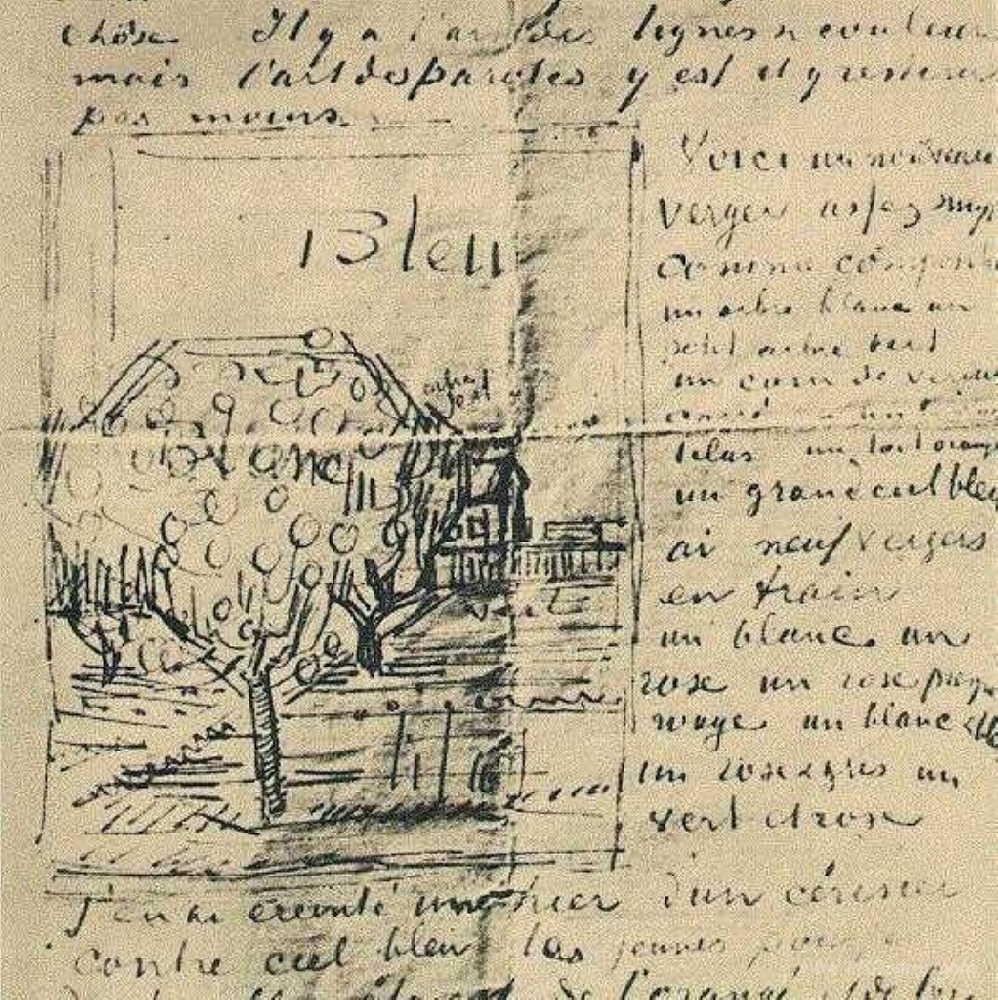 chose Il y a l'art des lignes & couleurs
mais l'art des paroles y est et y restera
pas moins.
Voici un nouveau
verger assez simple
comme composition
un arbre blanc un
petit arbre vert
un carré de verdure
lilas un toit orange
un grand ciel bleu
ai neuf vergers
en train
un blanc. un
rose un rose presque
rouge un blanc &
un rose & gris un
vert et rose
Bleu
Blanc
vert
J'en ai éreinté un hier d'un cerisier
contre ciel bleu les jeunes
de l'orangé